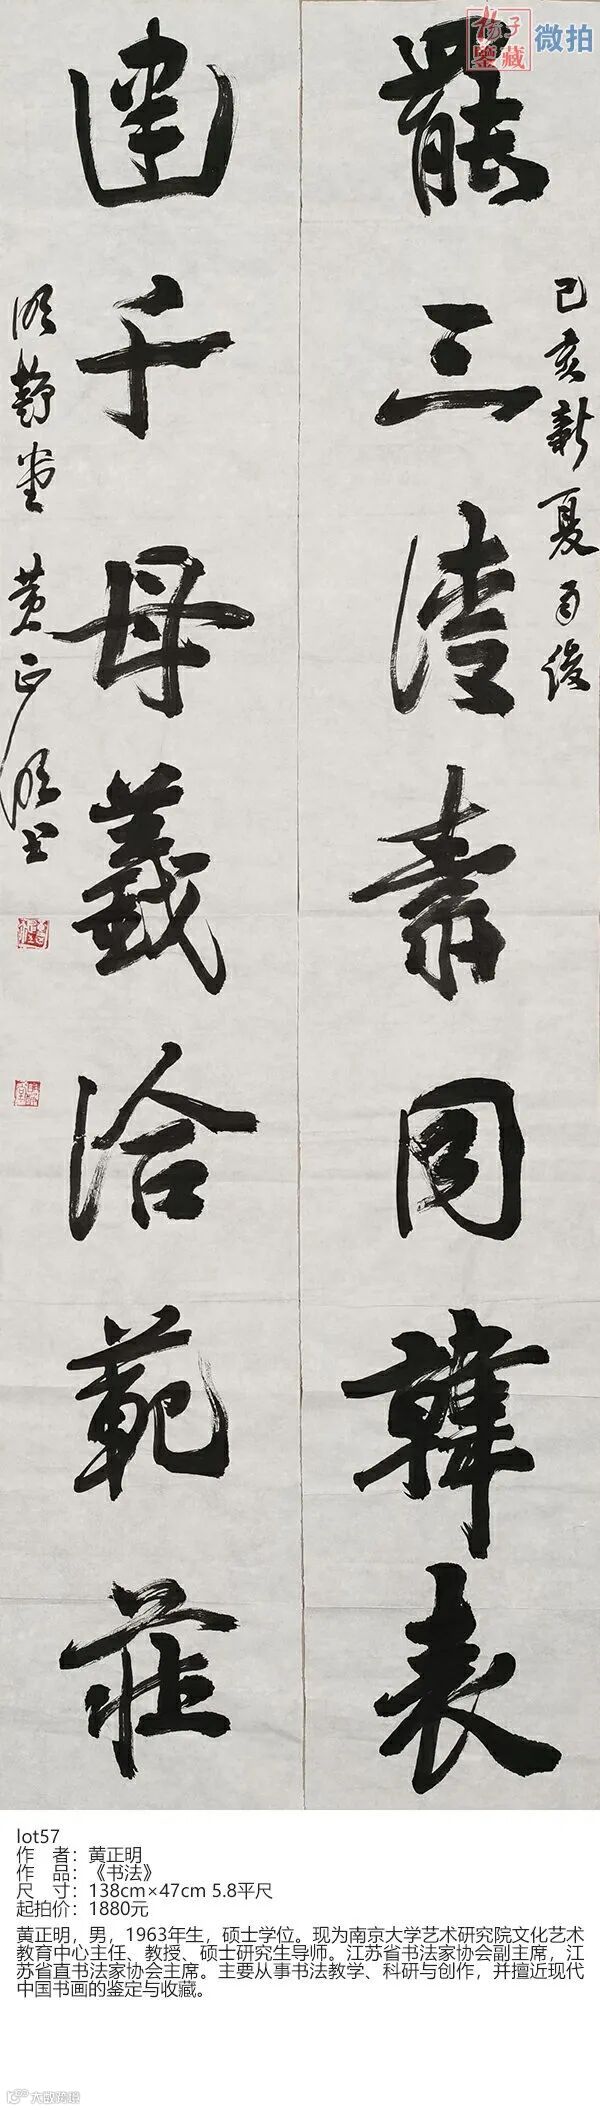 扬子
鉴藏 微拍
己亥新夏雨後
罷三同韓表
千母義洽範莊
明静堂黄正明书
lot57
作 者：黄正明
作 品：《书法》
尺 寸：138cm×47cm 5.8平尺
起拍价：1880元
黄正明，男，1963年生，硕士学位。现为南京大学艺术研究院文化艺术
教育中心主任、教授、硕士研究生导师。江苏省书法家协会副主席，江
苏省直书法家协会主席。主要从事书法教学、科研与创作，并擅近现代
中国书画的鉴定与收藏。
大数跨境